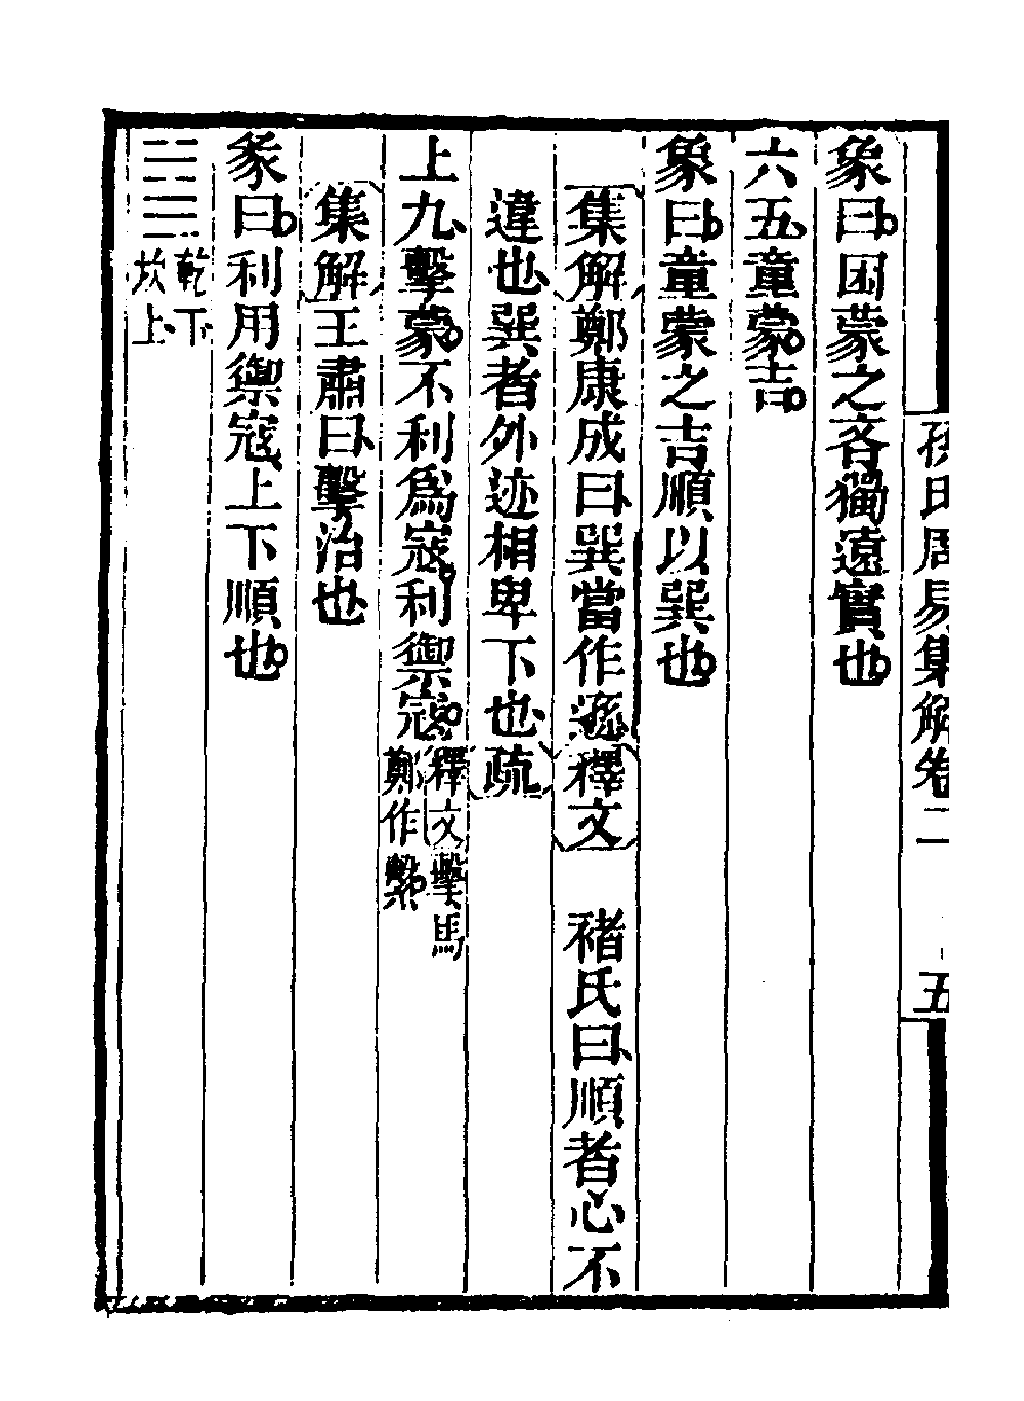 孫氏周易集解卷二 五
象曰。困蒙之吝獨遠實也。
六五、童蒙。吉。
象曰。童蒙之吉順以巽也。
集解鄭康成曰、巽當作遜。釋文 褚氏曰、順者心不
違也、巽者外迹相卑下也、疏
上九、擊蒙。不利爲寇。利禦寇。釋文擊馬
鄭作繫。
集解王肅曰、擊治也
彖曰。利用禦寇上下順也。
䷄乾下
坎上